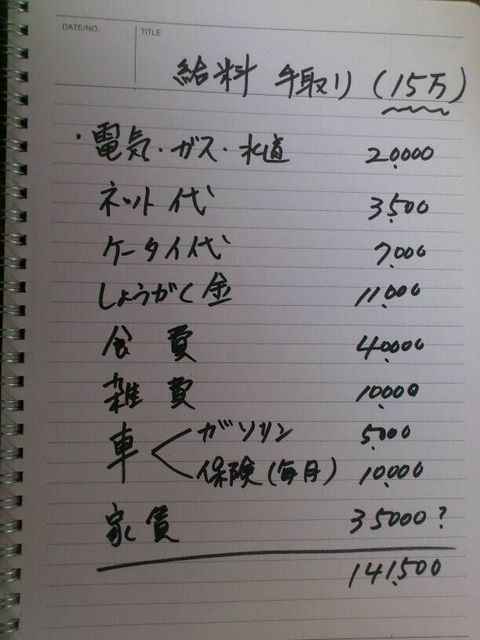 DATE/NO.
TITLE
給料 手取り (15万)
・電気・ガス・水道 20.000
ネット代 3.500
ケータイ代 7.000
しょうがく金 11.000
食費 40.000
雑費 10.000
車 ガソリン 5.000
保険(毎月) 10.000
家賃 35000?
141.500